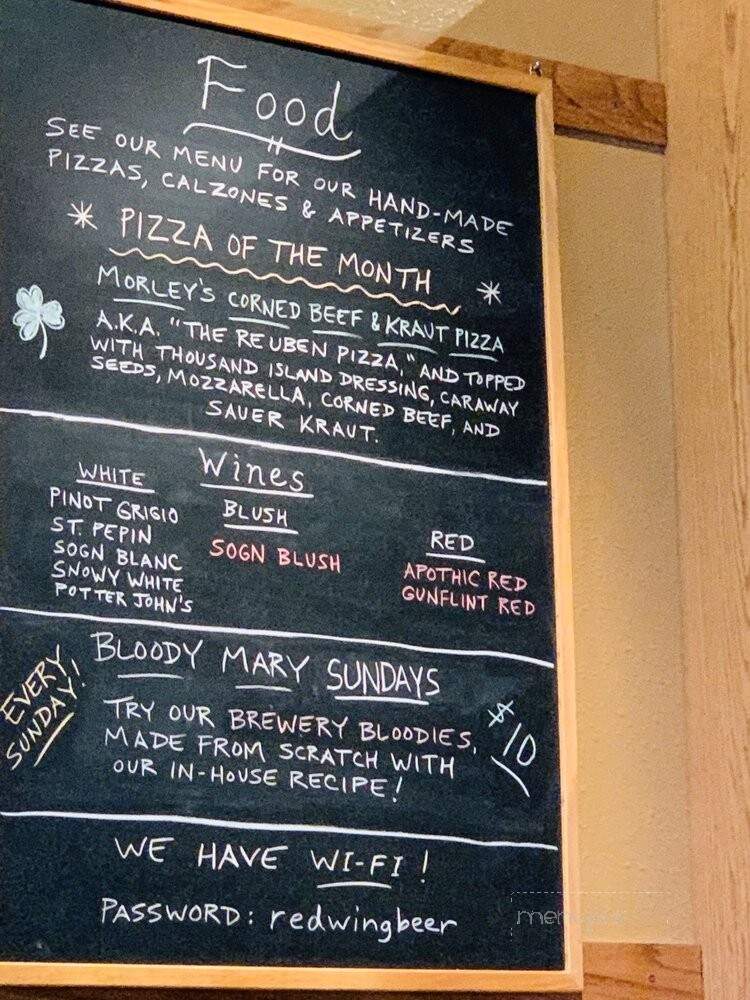 Food
SEE OUR MENU FOR OUR HAND-MADE
PIZZAS, CALZONES & APPETIZERS
* PIZZA OF THE MONTH *
MORLEY'S CORNED BEEF & KRAUT PIZZA
A.K.A. "THE REUBEN PIZZA," AND TOPPED
WITH THOUSAND ISLAND DRESSING, CARAWAY
SEEDS, MOZZARELLA, CORNED BEEF, AND
SAUER KRAUT.
Wines
WHITE
PINOT GRIGIO
ST. PEPIN
SOGN BLANC
SNOWY WHITE
POTTER JOHN'S
BLUSH
SOGN BLUSH
RED
APOTHIC RED
GUNFLINT RED
EVERY
SUNDAY!
BLOODY MARY SUNDAYS
TRY OUR BREWERY BLOODIES,
MADE FROM SCRATCH WITH
OUR IN-HOUSE RECIPE!
$10
WE HAVE WI-FI!
PASSWORD: redwingbeer